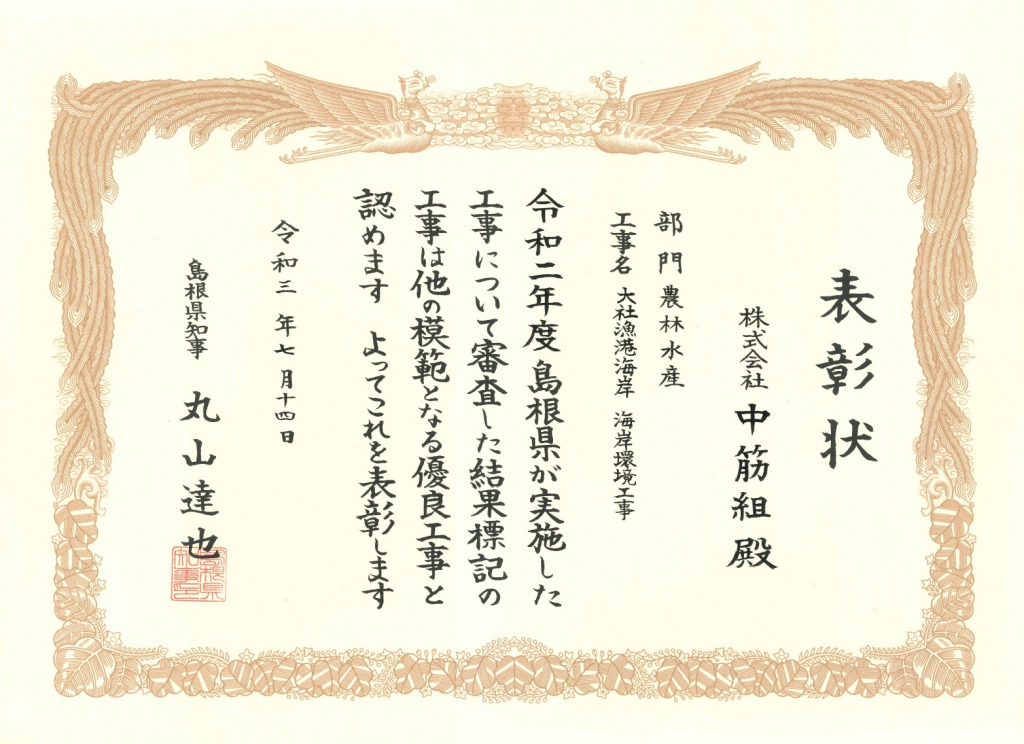 表彰状
株式会社 中筋組 殿
部門 農林水産
工事名 大社漁港海岸 海岸環境工事
令和二年度島根県が実施した
工事について審査した結果標記の
工事は他の模範となる優良工事と
認めます よってこれを表彰します
令和三年七月十四日
島根県知事 丸山達也